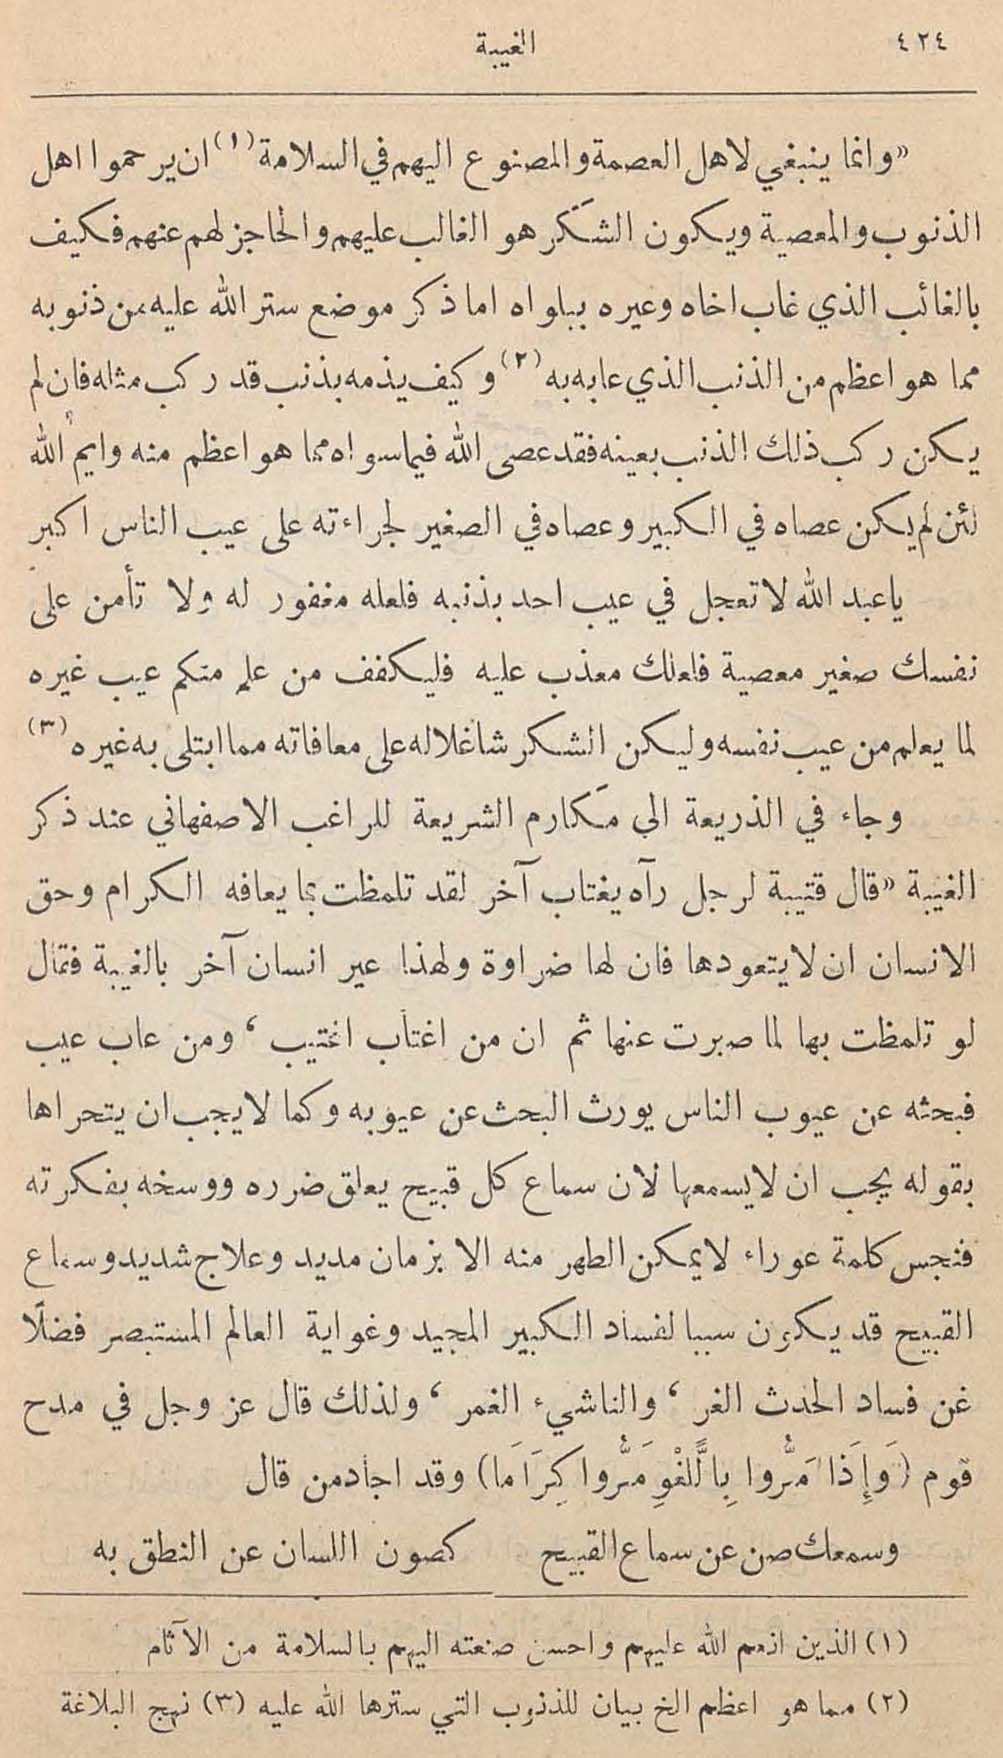 ٤٢٤
الغيبة
«وانما ينبغي لاهل العصمة والمصنوع اليهم في السلامة (١) ان يرحموا اهل
الذنوب والمعصية ويكون الشكر هو الغالب عليهم والحاجز لهم عنهم فكيف
بالغائب الذي غاب اخاه وعيره ببلواه اما ذكر موضع ستر الله عليه من ذنوبه
مما هو اعظم من الذنب الذي عابه به (٢) وكيف يذمه بذنب قد ركب مثله فان لم
يكن ركب ذلك الذنب بعينه فقد عصى الله فيما سواه مما هو اعظم منه وايم الله
لئن لم يكن عصاه في الكبير وعصاه في الصغير لجراءته على عيب الناس اكبر
ياعبد الله لا تعجل في عيب احد بذنبه فلعله مغفور له ولا تأمن على
نفسك صغير معصية فلعلك معذب عليه فليكفف من علم منكم عيب غيره
لما يعلم من عيب نفسه وليكن الشكر شاغلا له على معافاته مما ابتلى به غيره (٣)
وجاء في الذريعة الى مكارم الشريعة للراغب الاصفهاني عند ذكر
الغيبة «قال قتيبة لرجل رآه يغتاب آخر لقد تلمظت بما يعافه الكرام وحق
الانسان ان لا يتعودها فان لها ضراوة ولهذا عير انسان آخر بالغيبة فقال
لو تلمظت بها لما صبرت عنها ثم ان من اغتاب اغتيب ، ومن عاب عيب
فبحثه عن عيوب الناس يورث البحث عن عيوبه وكما لا يجب ان يتحراها
بقوله يجب ان لا يسمعها لان سماع كل قبيح يعلق ضرره ووسخه بفكرته
فنجس كلمة عوراء لا يمكن الطهر منه الا بزمان مديد وعلاج شديد وسماع
القبيح قد يكون سببا لفساد الكبير المجيد وغواية العالم المستبصر فضلًا
عن فساد الحدث الغر ، والناشيء الغمر ، ولذلك قال عز وجل في مدح
قوم (وَإِذَا مَرُّوا بِاللَّغْوِ مَرُّوا كِرَامَا) وقد اجاد من قال
وسمعك صن عن سماع القبيح كصون اللسان عن النطق به
(١) الذين انعم الله عليهم واحسن صنعته اليهم بالسلامة من الآثام
(٢) مما هو اعظم الخ بيان للذنوب التي سترها الله عليه (٣) نهج البلاغة